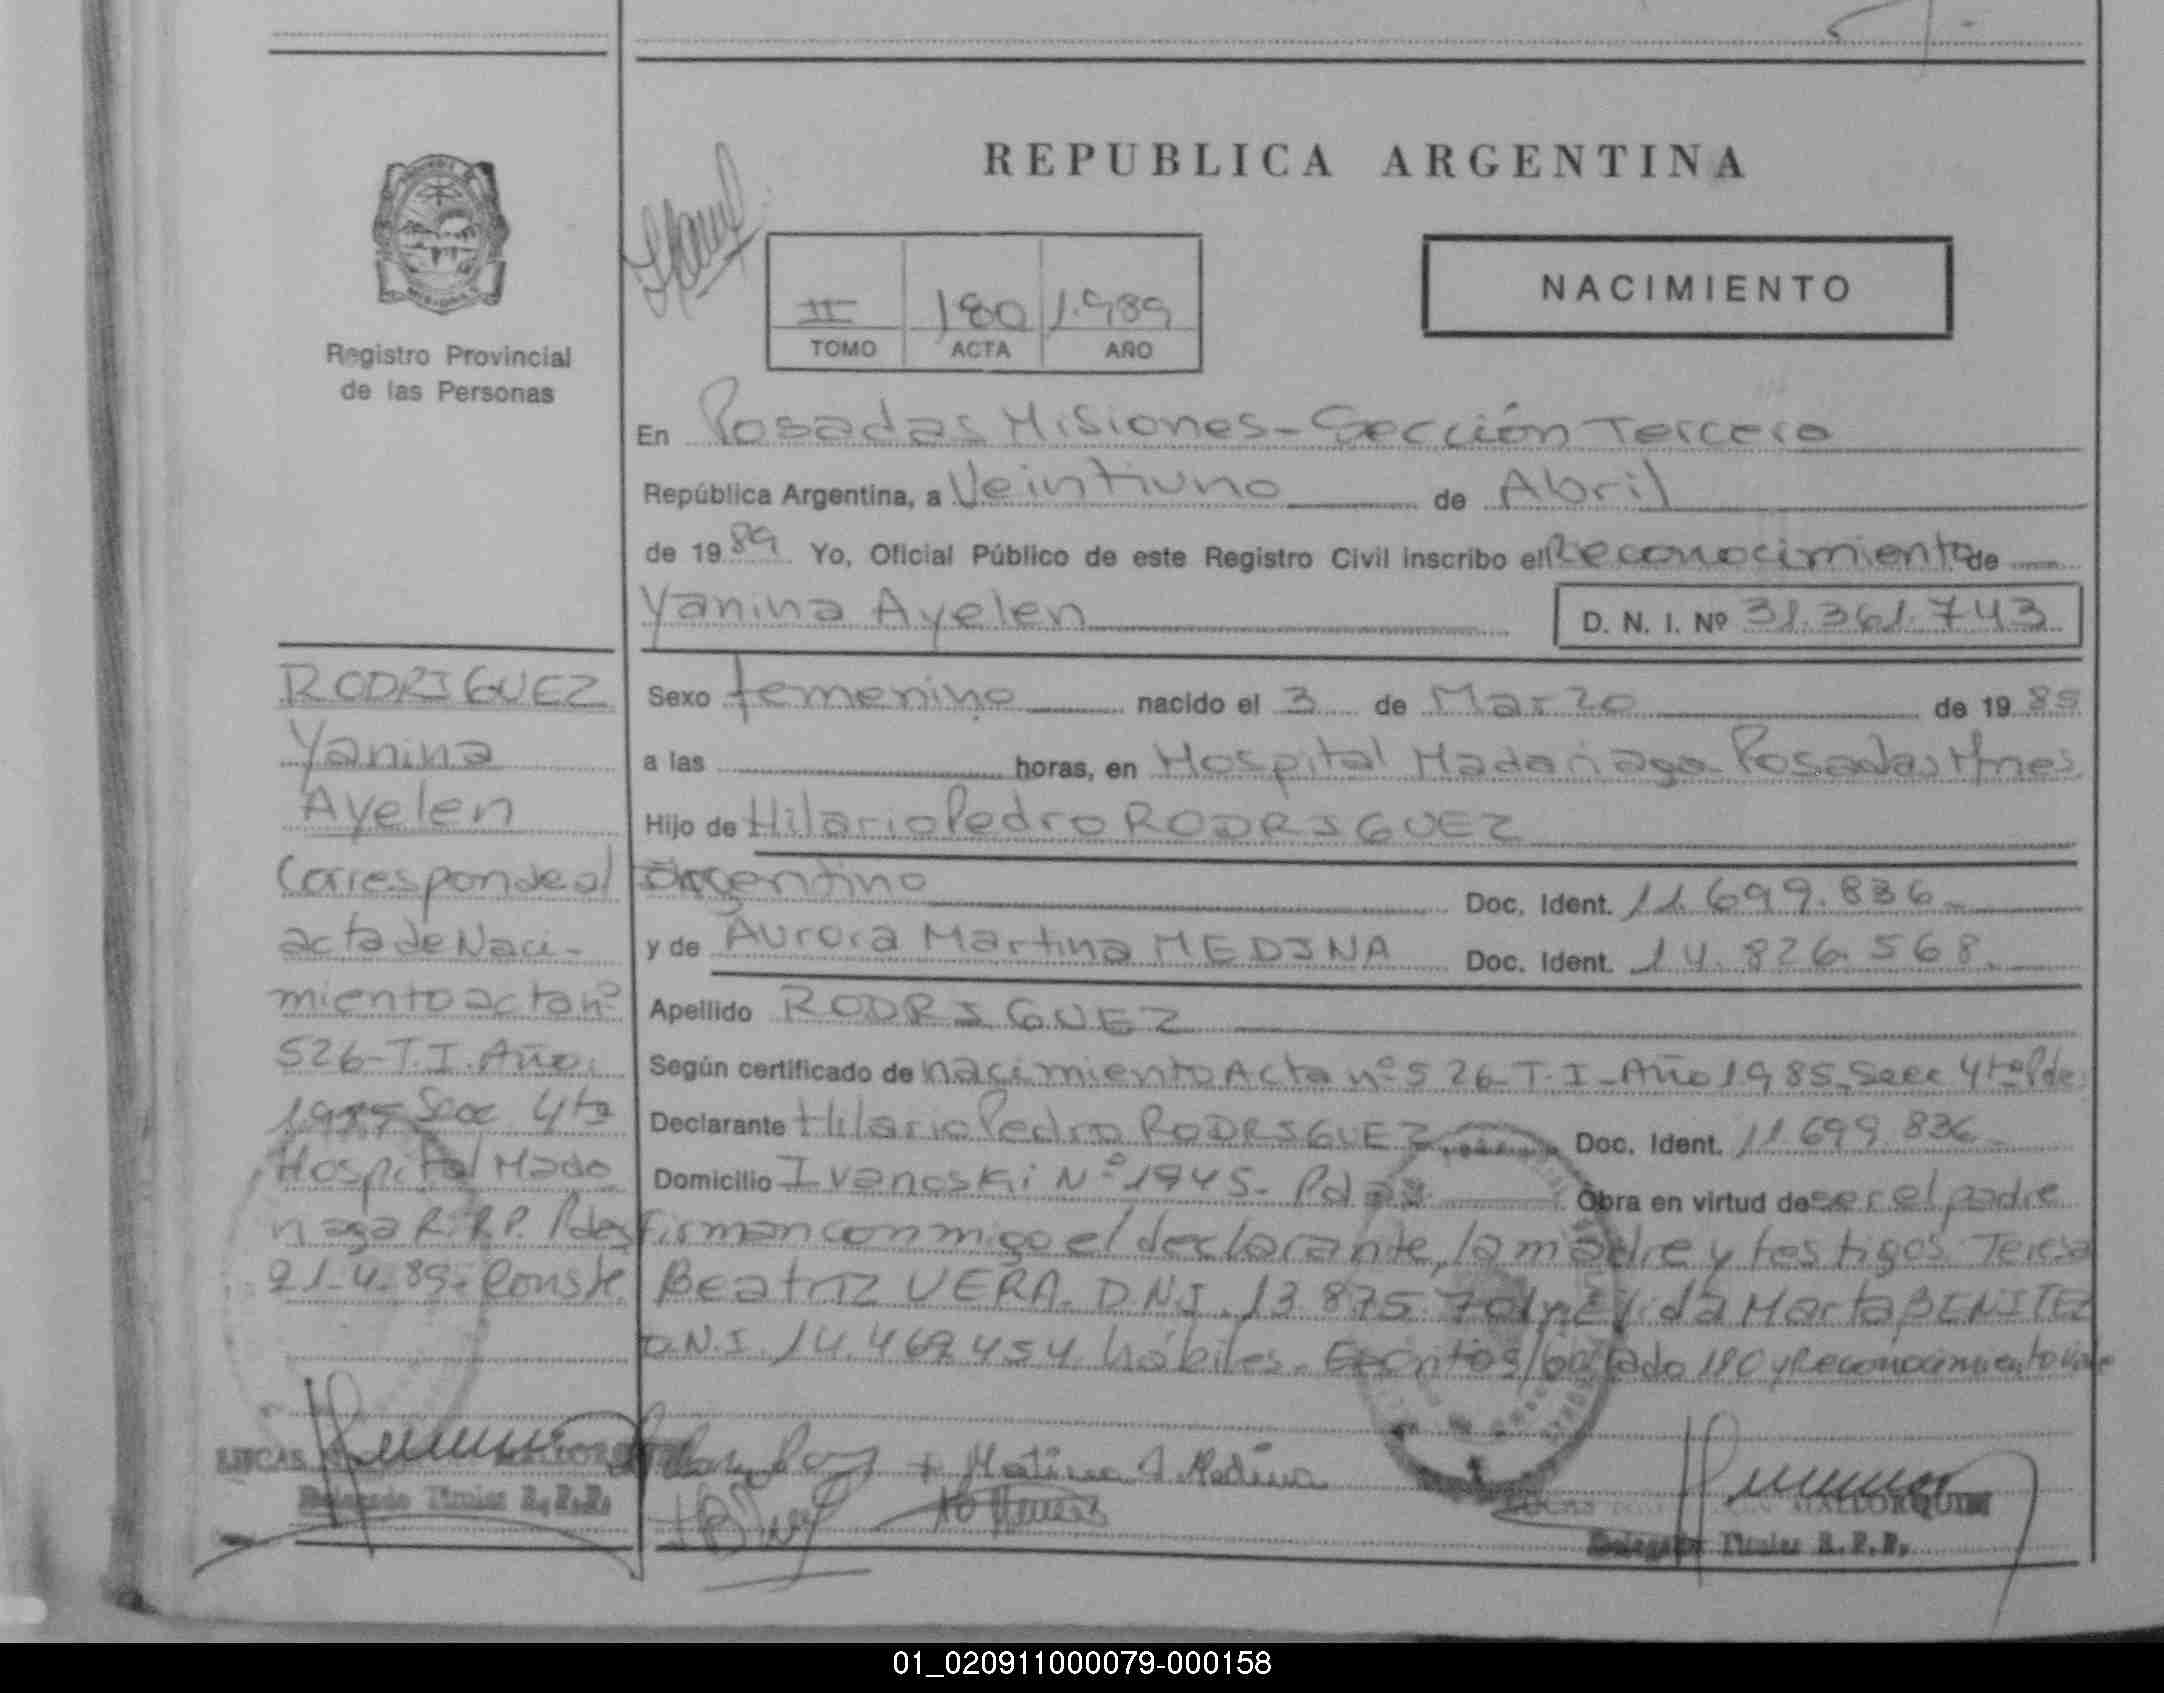 REPUBLICA ARGENTINA
NACIMIENTO
II 180 1.989
TOMO ACTA AÑO
Registro Provincial
de las Personas
En Posadas Misiones - Sección Tercera
República Argentina, a Veintiuno de Abril
de 1989 Yo, Oficial Público de este Registro Civil inscribo el Reconocimiento de
Yanina Ayelen D. N. I. Nº 31.361.743
Sexo femenino nacido el 3 de Marzo de 1985
a las horas, en Hospital Madariaga Posadas Mnes
Hijo de Hilario Pedro RODRIGUEZ
argentino Doc. Ident. 11.699.836
y de Aurora Martina MEDINA Doc. Ident. 14.826.568
Apellido RODRIGUEZ
Según certificado de nacimiento Acta nº 526-T.I-Año 1985-Secc 4ta Pdas
Declarante Hilario Pedro RODRIGUEZ Doc. Ident. 11699836
Domicilio Ivanoski Nº 1945- Pdas Obra en virtud de ser el padre
firman conmigo el declarante, la madre y testigos Teresa
Beatriz VERA- D.N.I. 13.875 y Elida Marta BENITEZ
D.N.I. 14.469.454 hábiles. 180 y Reconocimiento vale
RODRIGUEZ
Yanina
Ayelen
Corresponde al
acta de Naci-
miento acta nº
526-T.I. Año
1985 Secc 4ta
Hospital Mada
riaga R.P.P. Pdas
21-4-89- Conste
LUCAS
Delegado Titular R.P.P.
Martina A. Medina
LUCAS MALLORQUIN
Delegado Titular R.P.P.
01_020911000079-000158